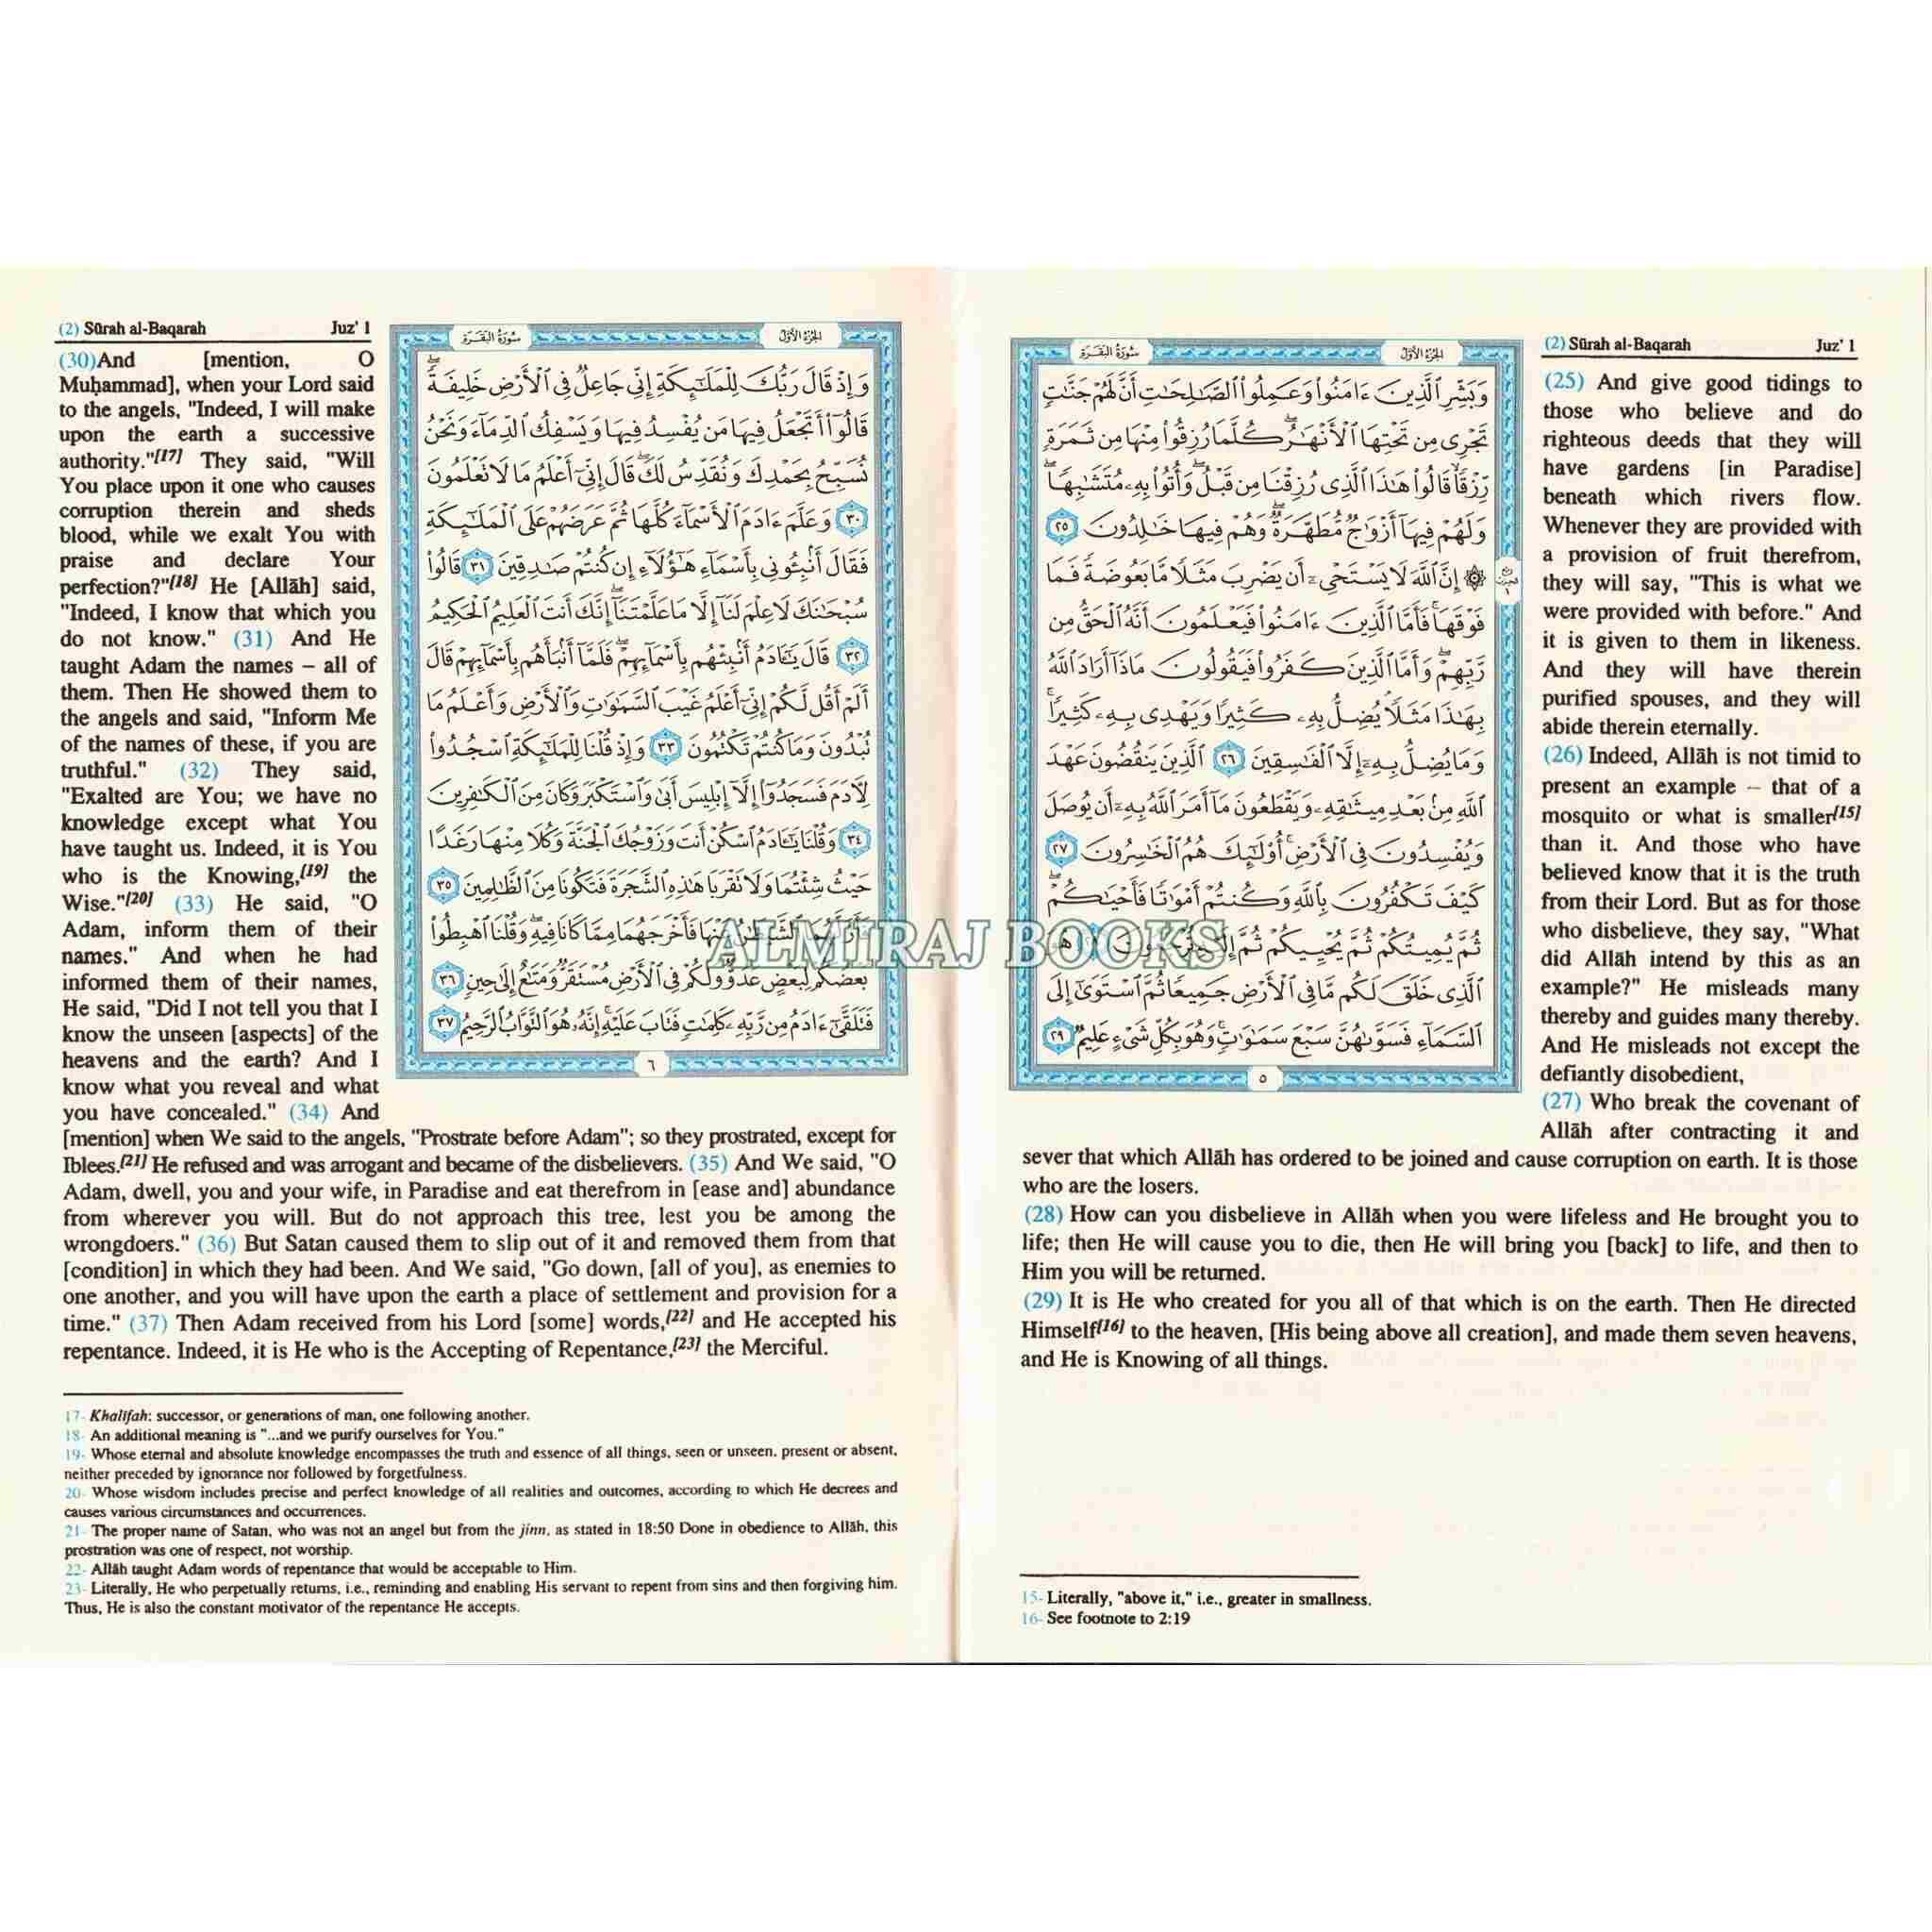 (2) Sūrah al-Baqarah Juz' 1
سُورَةُ البَقَرَة الجُزْءُ الأَوَّلُ
وَبَشِّرِ ٱلَّذِينَ ءَامَنُوا۟ وَعَمِلُوا۟ ٱلصَّـٰلِحَـٰتِ أَنَّ لَهُمْ جَنَّـٰتٍ
تَجْرِى مِن تَحْتِهَا ٱلْأَنْهَـٰرُ ۖ كُلَّمَا رُزِقُوا۟ مِنْهَا مِن ثَمَرَةٍ
رِّزْقًا ۙ قَالُوا۟ هَـٰذَا ٱلَّذِى رُزِقْنَا مِن قَبْلُ ۖ وَأُتُوا۟ بِهِۦ مُتَشَـٰبِهًا ۖ
وَلَهُمْ فِيهَآ أَزْوَٰجٌ مُّطَهَّرَةٌ ۖ وَهُمْ فِيهَا خَـٰلِدُونَ ٢٥
۞ إِنَّ ٱللَّهَ لَا يَسْتَحْىِۦٓ أَن يَضْرِبَ مَثَلًا مَّا بَعُوضَةً فَمَا
فَوْقَهَا ۚ فَأَمَّا ٱلَّذِينَ ءَامَنُوا۟ فَيَعْلَمُونَ أَنَّهُ ٱلْحَقُّ مِن
رَّبِّهِمْ ۖ وَأَمَّا ٱلَّذِينَ كَفَرُوا۟ فَيَقُولُونَ مَاذَآ أَرَادَ ٱللَّهُ
بِهَـٰذَا مَثَلًا ۘ يُضِلُّ بِهِۦ كَثِيرًا وَيَهْدِى بِهِۦ كَثِيرًا ۚ
وَمَا يُضِلُّ بِهِۦٓ إِلَّا ٱلْفَـٰسِقِينَ ٢٦ ٱلَّذِينَ يَنقُضُونَ عَهْدَ
ٱللَّهِ مِنۢ بَعْدِ مِيثَـٰقِهِۦ وَيَقْطَعُونَ مَآ أَمَرَ ٱللَّهُ بِهِۦٓ أَن يُوصَلَ
وَيُفْسِدُونَ فِى ٱلْأَرْضِ ۚ أُو۟لَـٰٓئِكَ هُمُ ٱلْخَـٰسِرُونَ ٢٧
كَيْفَ تَكْفُرُونَ بِٱللَّهِ وَكُنتُمْ أَمْوَٰتًا فَأَحْيَـٰكُمْ ۖ
ثُمَّ يُمِيتُكُمْ ثُمَّ يُحْيِيكُمْ ثُمَّ
ٱلَّذِى خَلَقَ لَكُم مَّا فِى ٱلْأَرْضِ جَمِيعًا ثُمَّ ٱسْتَوَىٰٓ إِلَى
ٱلسَّمَآءِ فَسَوَّىٰهُنَّ سَبْعَ سَمَـٰوَٰتٍ ۚ وَهُوَ بِكُلِّ شَىْءٍ عَلِيمٌ ٢٩
٥
(25) And give good tidings to
those who believe and do
righteous deeds that they will
have gardens [in Paradise]
beneath which rivers flow.
Whenever they are provided with
a provision of fruit therefrom,
they will say, "This is what we
were provided with before." And
it is given to them in likeness.
And they will have therein
purified spouses, and they will
abide therein eternally.
(26) Indeed, Allāh is not timid to
present an example – that of a
mosquito or what is smaller[15]
than it. And those who have
believed know that it is the truth
from their Lord. But as for those
who disbelieve, they say, "What
did Allāh intend by this as an
example?" He misleads many
thereby and guides many thereby.
And He misleads not except the
defiantly disobedient,
(27) Who break the covenant of
Allāh after contracting it and
sever that which Allāh has ordered to be joined and cause corruption on earth. It is those
who are the losers.
(28) How can you disbelieve in Allāh when you were lifeless and He brought you to
life; then He will cause you to die, then He will bring you [back] to life, and then to
Him you will be returned.
(29) It is He who created for you all of that which is on the earth. Then He directed
Himself[16] to the heaven, [His being above all creation], and made them seven heavens,
and He is Knowing of all things.
15- Literally, "above it," i.e., greater in smallness.
16- See footnote to 2:19
(2) Sūrah al-Baqarah Juz' 1
سُورَةُ البَقَرَة الجُزْءُ الأَوَّلُ
وَإِذْ قَالَ رَبُّكَ لِلْمَلَـٰٓئِكَةِ إِنِّى جَاعِلٌ فِى ٱلْأَرْضِ خَلِيفَةً ۖ
قَالُوٓا۟ أَتَجْعَلُ فِيهَا مَن يُفْسِدُ فِيهَا وَيَسْفِكُ ٱلدِّمَآءَ وَنَحْنُ
نُسَبِّحُ بِحَمْدِكَ وَنُقَدِّسُ لَكَ ۖ قَالَ إِنِّىٓ أَعْلَمُ مَا لَا تَعْلَمُونَ
٣٠ وَعَلَّمَ ءَادَمَ ٱلْأَسْمَآءَ كُلَّهَا ثُمَّ عَرَضَهُمْ عَلَى ٱلْمَلَـٰٓئِكَةِ
فَقَالَ أَنۢبِـُٔونِى بِأَسْمَآءِ هَـٰٓؤُلَآءِ إِن كُنتُمْ صَـٰدِقِينَ ٣١ قَالُوا۟
سُبْحَـٰنَكَ لَا عِلْمَ لَنَآ إِلَّا مَا عَلَّمْتَنَآ ۖ إِنَّكَ أَنتَ ٱلْعَلِيمُ ٱلْحَكِيمُ
٣٢ قَالَ يَـٰٓـَٔادَمُ أَنۢبِئْهُم بِأَسْمَآئِهِمْ ۖ فَلَمَّآ أَنۢبَأَهُم بِأَسْمَآئِهِمْ قَالَ
أَلَمْ أَقُل لَّكُمْ إِنِّىٓ أَعْلَمُ غَيْبَ ٱلسَّمَـٰوَٰتِ وَٱلْأَرْضِ وَأَعْلَمُ مَا
تُبْدُونَ وَمَا كُنتُمْ تَكْتُمُونَ ٣٣ وَإِذْ قُلْنَا لِلْمَلَـٰٓئِكَةِ ٱسْجُدُوا۟
لِـَٔادَمَ فَسَجَدُوٓا۟ إِلَّآ إِبْلِيسَ أَبَىٰ وَٱسْتَكْبَرَ وَكَانَ مِنَ ٱلْكَـٰفِرِينَ
٣٤ وَقُلْنَا يَـٰٓـَٔادَمُ ٱسْكُنْ أَنتَ وَزَوْجُكَ ٱلْجَنَّةَ وَكُلَا مِنْهَا رَغَدًا
حَيْثُ شِئْتُمَا وَلَا تَقْرَبَا هَـٰذِهِ ٱلشَّجَرَةَ فَتَكُونَا مِنَ ٱلظَّـٰلِمِينَ ٣٥
فَأَخْرَجَهُمَا مِمَّا كَانَا فِيهِ ۖ وَقُلْنَا ٱهْبِطُوا۟
بَعْضُكُمْ لِبَعْضٍ عَدُوٌّ ۖ وَلَكُمْ فِى ٱلْأَرْضِ مُسْتَقَرٌّ وَمَتَـٰعٌ إِلَىٰ حِينٍ ٣٦
فَتَلَقَّىٰٓ ءَادَمُ مِن رَّبِّهِۦ كَلِمَـٰتٍ فَتَابَ عَلَيْهِ ۚ إِنَّهُۥ هُوَ ٱلتَّوَّابُ ٱلرَّحِيمُ ٣٧
٦
(30)And [mention, O
Muḥammad], when your Lord said
to the angels, "Indeed, I will make
upon the earth a successive
authority."[17] They said, "Will
You place upon it one who causes
corruption therein and sheds
blood, while we exalt You with
praise and declare Your
perfection?"[18] He [Allāh] said,
"Indeed, I know that which you
do not know." (31) And He
taught Adam the names – all of
them. Then He showed them to
the angels and said, "Inform Me
of the names of these, if you are
truthful." (32) They said,
"Exalted are You; we have no
knowledge except what You
have taught us. Indeed, it is You
who is the Knowing,[19] the
Wise."[20] (33) He said, "O
Adam, inform them of their
names." And when he had
informed them of their names,
He said, "Did I not tell you that I
know the unseen [aspects] of the
heavens and the earth? And I
know what you reveal and what
you have concealed." (34) And
[mention] when We said to the angels, "Prostrate before Adam"; so they prostrated, except for
Iblees.[21] He refused and was arrogant and became of the disbelievers. (35) And We said, "O
Adam, dwell, you and your wife, in Paradise and eat therefrom in [ease and] abundance
from wherever you will. But do not approach this tree, lest you be among the
wrongdoers." (36) But Satan caused them to slip out of it and removed them from that
[condition] in which they had been. And We said, "Go down, [all of you], as enemies to
one another, and you will have upon the earth a place of settlement and provision for a
time." (37) Then Adam received from his Lord [some] words,[22] and He accepted his
repentance. Indeed, it is He who is the Accepting of Repentance,[23] the Merciful.
17- Khalīfah: successor, or generations of man, one following another.
18- An additional meaning is "...and we purify ourselves for You."
19- Whose eternal and absolute knowledge encompasses the truth and essence of all things, seen or unseen, present or absent,
neither preceded by ignorance nor followed by forgetfulness.
20- Whose wisdom includes precise and perfect knowledge of all realities and outcomes, according to which He decrees and
causes various circumstances and occurrences.
21- The proper name of Satan, who was not an angel but from the jinn, as stated in 18:50 Done in obedience to Allāh, this
prostration was one of respect, not worship.
22- Allāh taught Adam words of repentance that would be acceptable to Him.
23- Literally, He who perpetually returns, i.e., reminding and enabling His servant to repent from sins and then forgiving him.
Thus, He is also the constant motivator of the repentance He accepts.
ALMIRAJ BOOKS